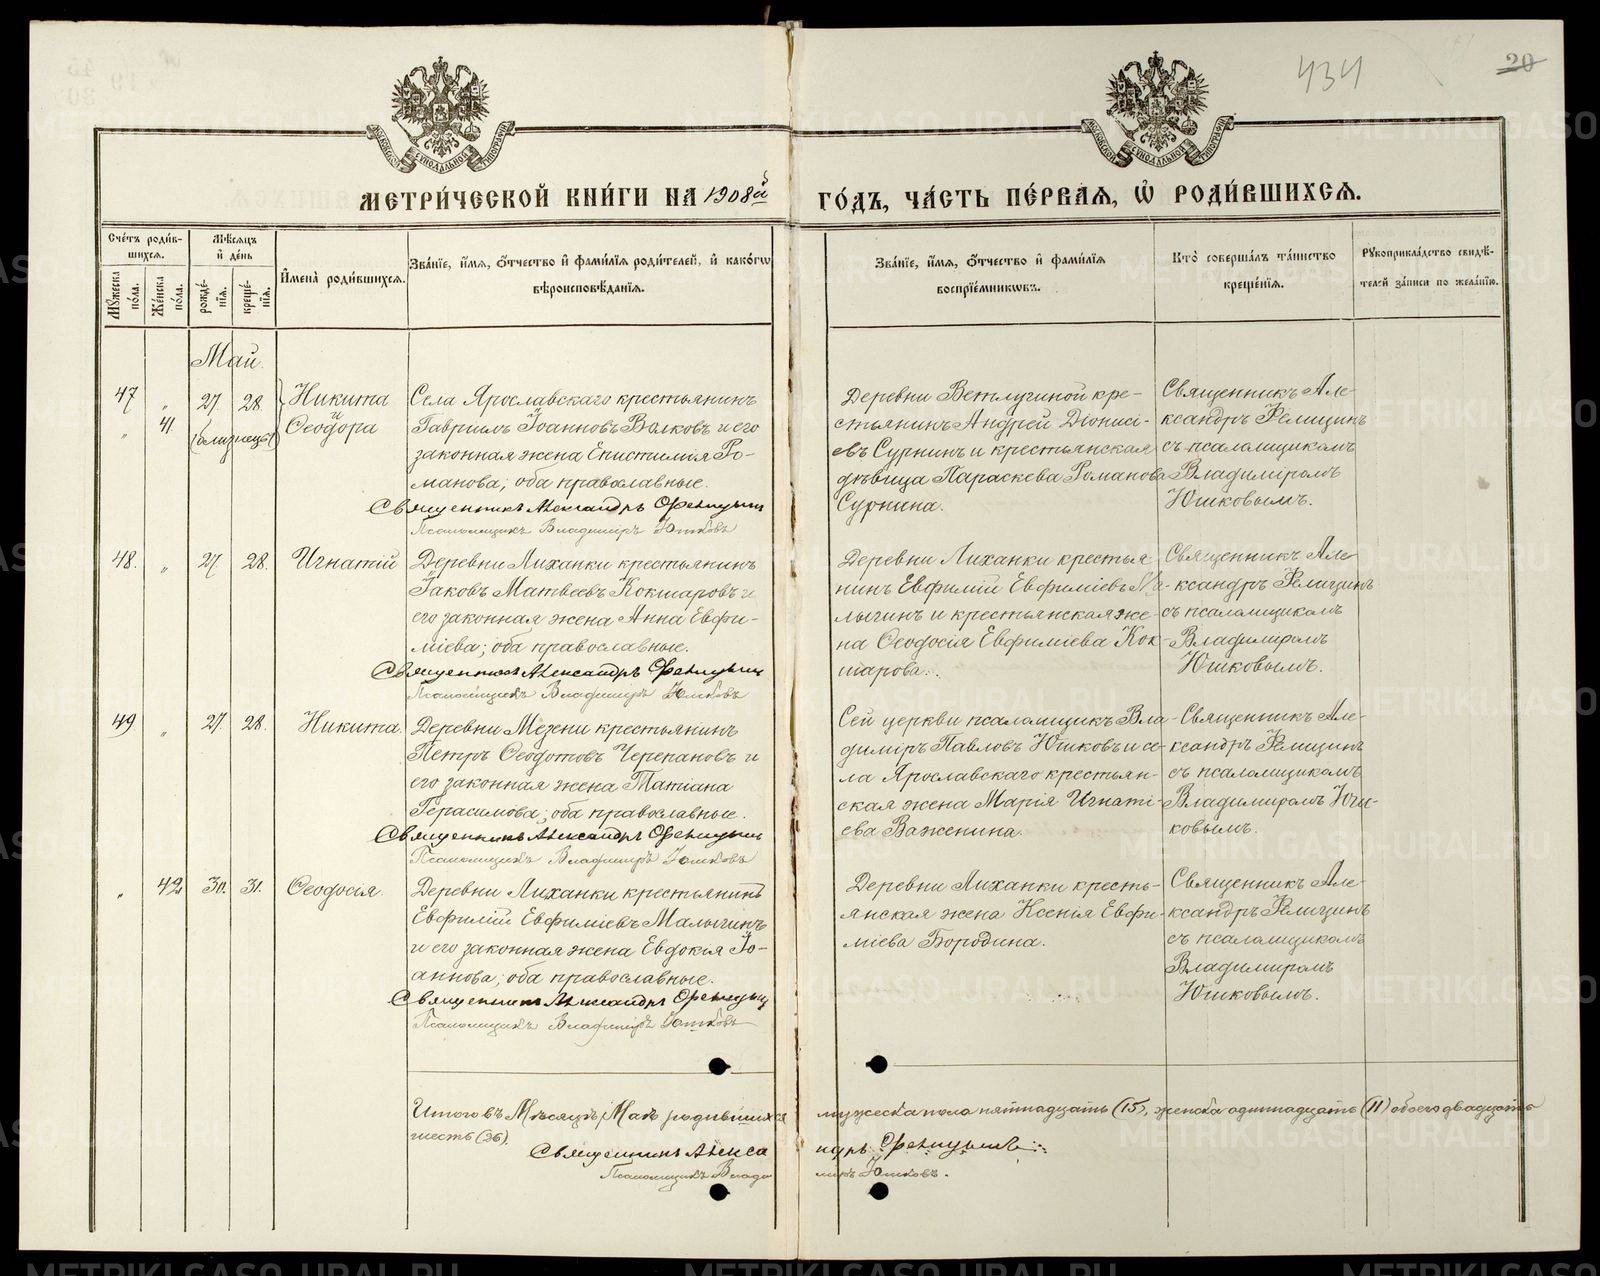 434
20
МЕТРИ́ЧЕСКОЙ КНИ́ГИ НА 1908й ГО́ДЪ, ЧА́СТЬ ПЕ́РВАѦ, Ѡ҆ РОДИ́ВШИХСѦ.
Счéтъ роди́вшихсѧ.
Мꙋ́жеска по́ла.
Же́нска по́ла.
Мѣ́сѧцъ и҆ де́нь
рожде́нїѧ.
креще́нїѧ.
И҆мена̀ роди́вшихсѧ.
Зва́нїе, и҆́мѧ, ѻ҆́тчество и҆ фами́лїѧ роди́телей, и҆ како́гѡ
вѣроисповѣ́данїѧ.
Зва́нїе, и҆́мѧ, ѻ҆́тчество и҆ фами́лїѧ
воспрїе́мникѡвъ.
Кто̀ соверша́лъ та́инство
креще́нїѧ.
Рꙋкоприкла́дство свидѣ́-
телей за́писи по жела́нїю.
Май.
47 " 27. 28. Никита
" 41. (близнецы) и Ѳеодора
Села Ярославскаго крестьянинъ
Гавриилъ Іоанновъ Волковъ и его
законная жена Епистимія Ро-
манова; оба православные.
Священникъ Александръ Фелицынъ
Псаломщикъ Владиміръ Юшковъ
Деревни Ветлугиной кре-
стьянинъ Андрей Діонисі-
евъ Сурнинъ и крестьянская
дѣвица Параскева Романова
Сурнина.
Священникъ Але-
ксандръ Фелицинъ
съ псаломщикомъ
Владиміромъ
Юшковымъ.
48. " 27. 28. Игнатій
Деревни Лиханки крестьянинъ
Іаковъ Матвеевъ Кокшаровъ и
его законная жена Анна Евфи-
міева; оба православные.
Священникъ Александръ Фелицынъ
Псаломщикъ Владиміръ Юшковъ
Деревни Лиханки крестья-
нинъ Евфимій Евфиміевъ Ма-
лыгинъ и крестьянская же-
на Ѳеодосія Евфиміева Кок-
шарова.
Священникъ Але-
ксандръ Фелицинъ
съ псаломщикомъ
Владиміромъ
Юшковымъ.
49 " 27. 28. Никита.
Деревни Мезени крестьянинъ
Петръ Ѳеодотовъ Черепановъ и
его законная жена Татіана
Герасимова; оба православные.
Священникъ Александръ Фелицынъ
Псаломщикъ Владиміръ Юшковъ
Сей церкви псаломщикъ Вла-
диміръ Павловъ Юшковъ и се-
ла Ярославскаго крестьян-
ская жена Марія Игнаті-
ева Важенина.
Священникъ Але-
ксандръ Фелицинъ
съ псаломщикомъ
Владиміромъ Юш-
ковымъ.
" 42 30. 31. Ѳеодосія.
Деревни Лиханки крестьянинъ
Евфимій Евфиміевъ Малыгинъ
и его законная жена Евдокія Іо-
аннова; оба православные.
Священникъ Александръ Фелицынъ
Псаломщикъ Владиміръ Юшковъ
Деревни Лиханки кресть-
янская жена Ксенія Евфи-
міева Бородина.
Священникъ Але-
ксандръ Фелицинъ
съ псаломщикомъ
Владиміромъ
Юшковымъ.
Итого въ Мѣсяцѣ Маѣ родившихся мужеска пола пятнадцать (15), женска одиннадцать (11) обоего двадцать
шесть (26).
Священникъ Александръ Фелицынъ
Псаломщикъ Владиміръ Юшковъ.
METRIKI.GASO-URAL.RU